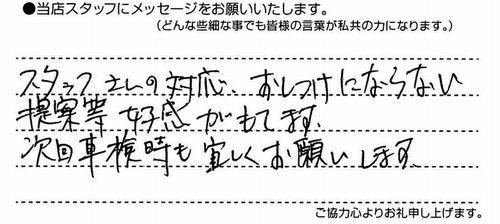 ●当店スタッフにメッセージをお願いいたします。
(どんな些細な事でも皆様の言葉が私共の力になります。)
スタッフさんの対応、おしつけにならない
提案等好感がもてます。
次回車検時も宜しくお願いします。
ご協力心よりお礼申し上げます。